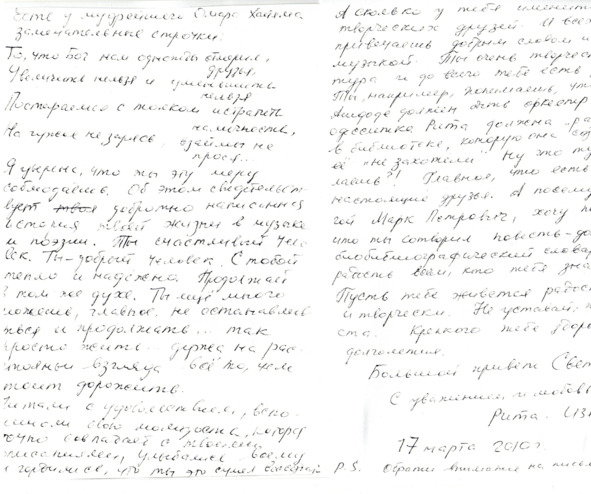 Есть у мудрейшего Омара Хайяма
замечательные строчки:
То, что Бог нам однажды отмерил,
друзья,
Увеличить нельзя и уменьшить
нельзя
Постараемся с толком истратить
наличность,
На чужое не зарясь, взаймы не
прося...
Я уверена, что ты эту меру
соблюдаешь. Об этом свидетельст-
вует твоя добротно написанная
история твоей жизни в музыке
и поэзии. Ты счастливый чело
век. Ты - добрый человек. С тобой
тепло и надежно. Продолжай
в том же духе. Ты ещё много
можешь, главное не останавлив
ться и продолжать... так
просто жить... держа на рас-
стоянии взгляда всё то, чем
стоит дорожить.
Читали с удовольствием, вспо-
минали свою молодость, которая
совпадает с твоей
улыбались всему
и гордились, что ты это сумел
А сколько у тебя
творческих друзей. И всех
привечаешь добрым словом и
музыкой. Ты очень творчес
тура и до всего тебе есть
Ты, например, понимаешь, что
Ашдоде должен быть оркестр
одесситка Рита должна "ра
в библиотеке, которую она соз
её "не захотели" Ну что ту
лаешь?! Главное, что есть
настоящие друзья. А посему
гой Марк Петрович, хочу
что ты сотворил повесть-до
биобиблиографический словар
радость всем, кто тебя зна
Пусть тебе живется радос
и творчески. Не уставай,
ста. Крепкого тебе здоро
долголетия.
Большой привет Свет
С уважением и любовь
Рита. Изя
17 марта 2010 г.
P.S. Обрати внимание на письм